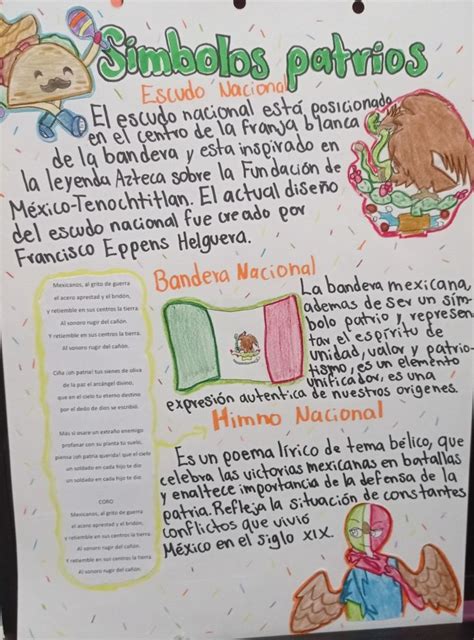 Símbolos patrios
Escudo Nacional
El escudo nacional está posicionado
en el centro de la franja blanca
de la bandera y esta inspirado en
la leyenda Azteca sobre la Fundación de
México-Tenochtitlan. El actual diseño
del escudo nacional fue creado por
Francisco Eppens Helguera.
Mexicanos, al grito de guerra
el acero aprestad y el bridón,
y retiemble en sus centros la tierra.
Al sonoro rugir del cañón.
Y retiemble en sus centros la tierra.
Al sonoro rugir del cañón.
Ciña ¡oh patria! tus sienes de oliva
de la paz el arcángel divino,
que en el cielo tu eterno destino
por el dedo de dios se escribió.
Más si osare un extraño enemigo
profanar con su planta tu suelo,
piensa ¡oh patria querida! que el cielo
un soldado en cada hijo te dio
un soldado en cada hijo te dio.
CORO
Mexicanos, al grito de guerra
el acero aprestad y el bridón,
y retiemble en sus centros la tierra.
Al sonoro rugir del cañón.
Y retiemble en sus centros la tierra.
Al sonoro rugir del cañón.
Bandera Nacional
La bandera mexicana,
ademas de ser un sím
bolo patrio y represen
tar el espíritu de
unidad, valor y patrio-
tismo, es un elemento
unificador, es una
expresión autentica de nuestros origenes.
Himno Nacional
Es un poema lírico de tema bélico, que
celebra las victorias mexicanas en batallas
y enaltece importancia de la defensa de la
patria. Refleja la situación de constantes
conflictos que vivió
México en el siglo XIX.